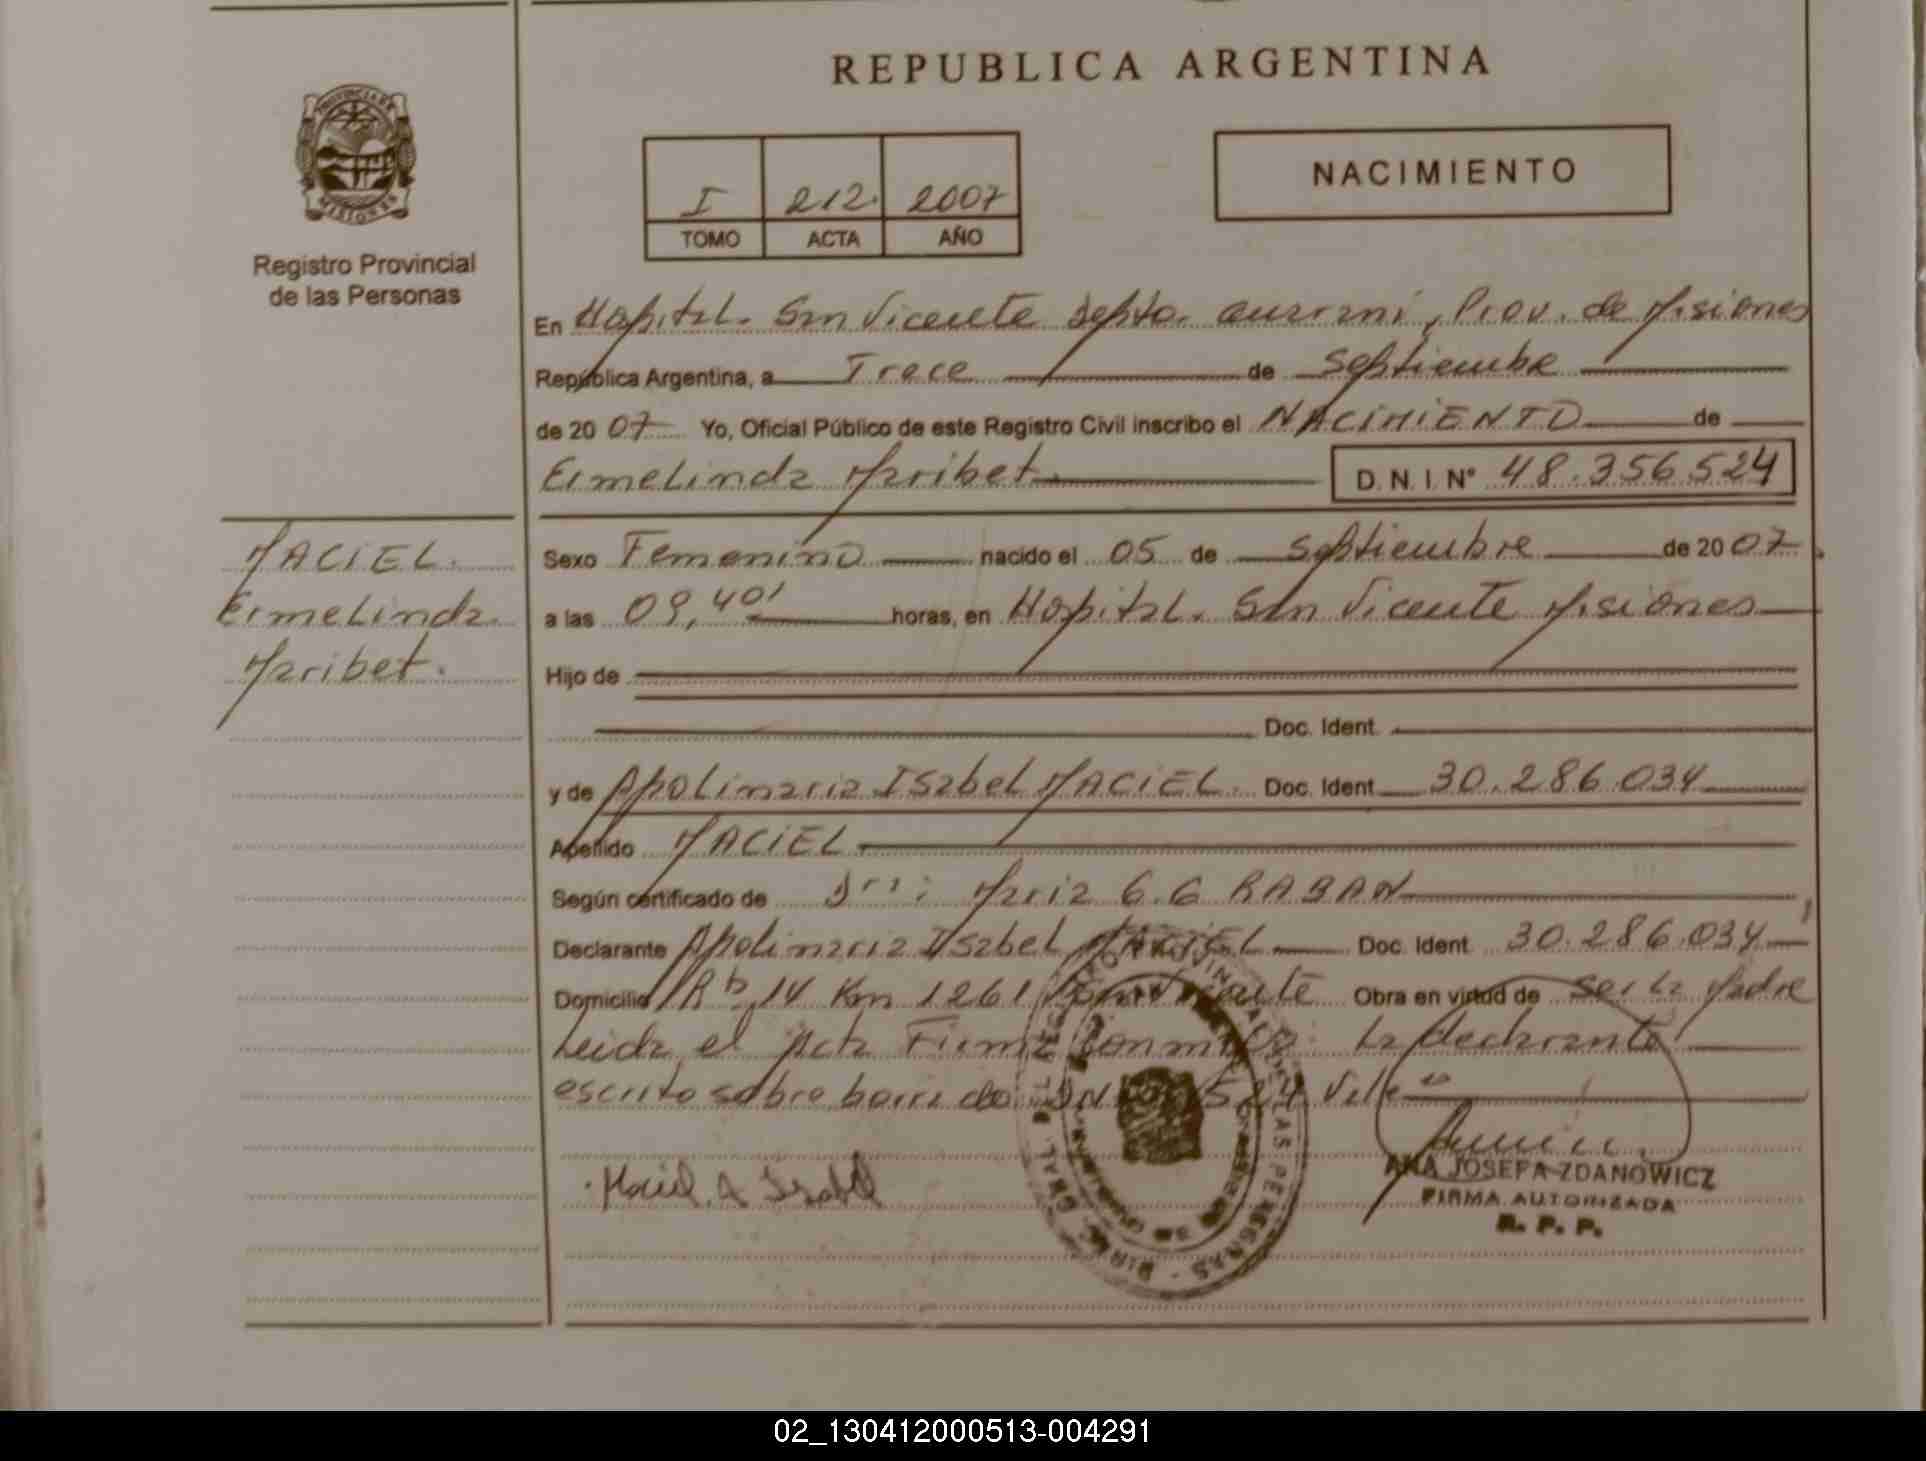 REPUBLICA ARGENTINA
PROVINCIA DE
MISIONES
Registro Provincial
de las Personas
I 212. 2007
TOMO ACTA AÑO
NACIMIENTO
En Hospital. San Vicente Depto. Guarani, Prov. de Misiones
República Argentina, a Trece de Septiembre
de 2007 Yo, Oficial Público de este Registro Civil inscribo el NACIMIENTO de
Ermelinda Maribet. D. N. I. Nº 48.356.524
MACIEL.
Ermelinda
Maribet.
Sexo Femenino nacido el 05 de Septiembre de 2007.
a las 09,40' horas, en Hospital. San Vicente Misiones
Hijo de
Doc. Ident.
y de Apolinaria Isabel MACIEL. Doc. Ident. 30.286.034
Apellido MACIEL.
Según certificado de Dra: Maria G.G RABAN
Declarante Apolinaria Isabel MACIEL Doc. Ident. 30.286.034
Domicilio 14 Km 1261 San Vicente Obra en virtud de ser la Madre
Leida el Acta Firma conmigo: la declarante
escrito sobre borrado: DNI 524 Vale
Maciel A Isabel
ANA JOSEFA ZDANOWICZ
FIRMA AUTORIZADA
R. P. P.
02_130412000513-004291